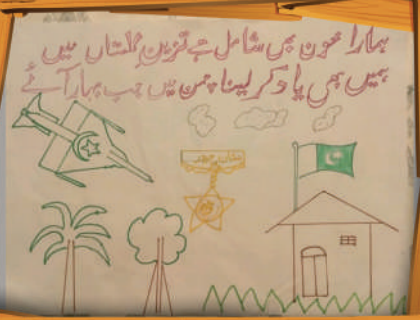 ہمارا خون بھی شامل ہے تزئین گلستاں میں
ہمیں بھی یاد کر لینا چمن میں جب بہار آئے